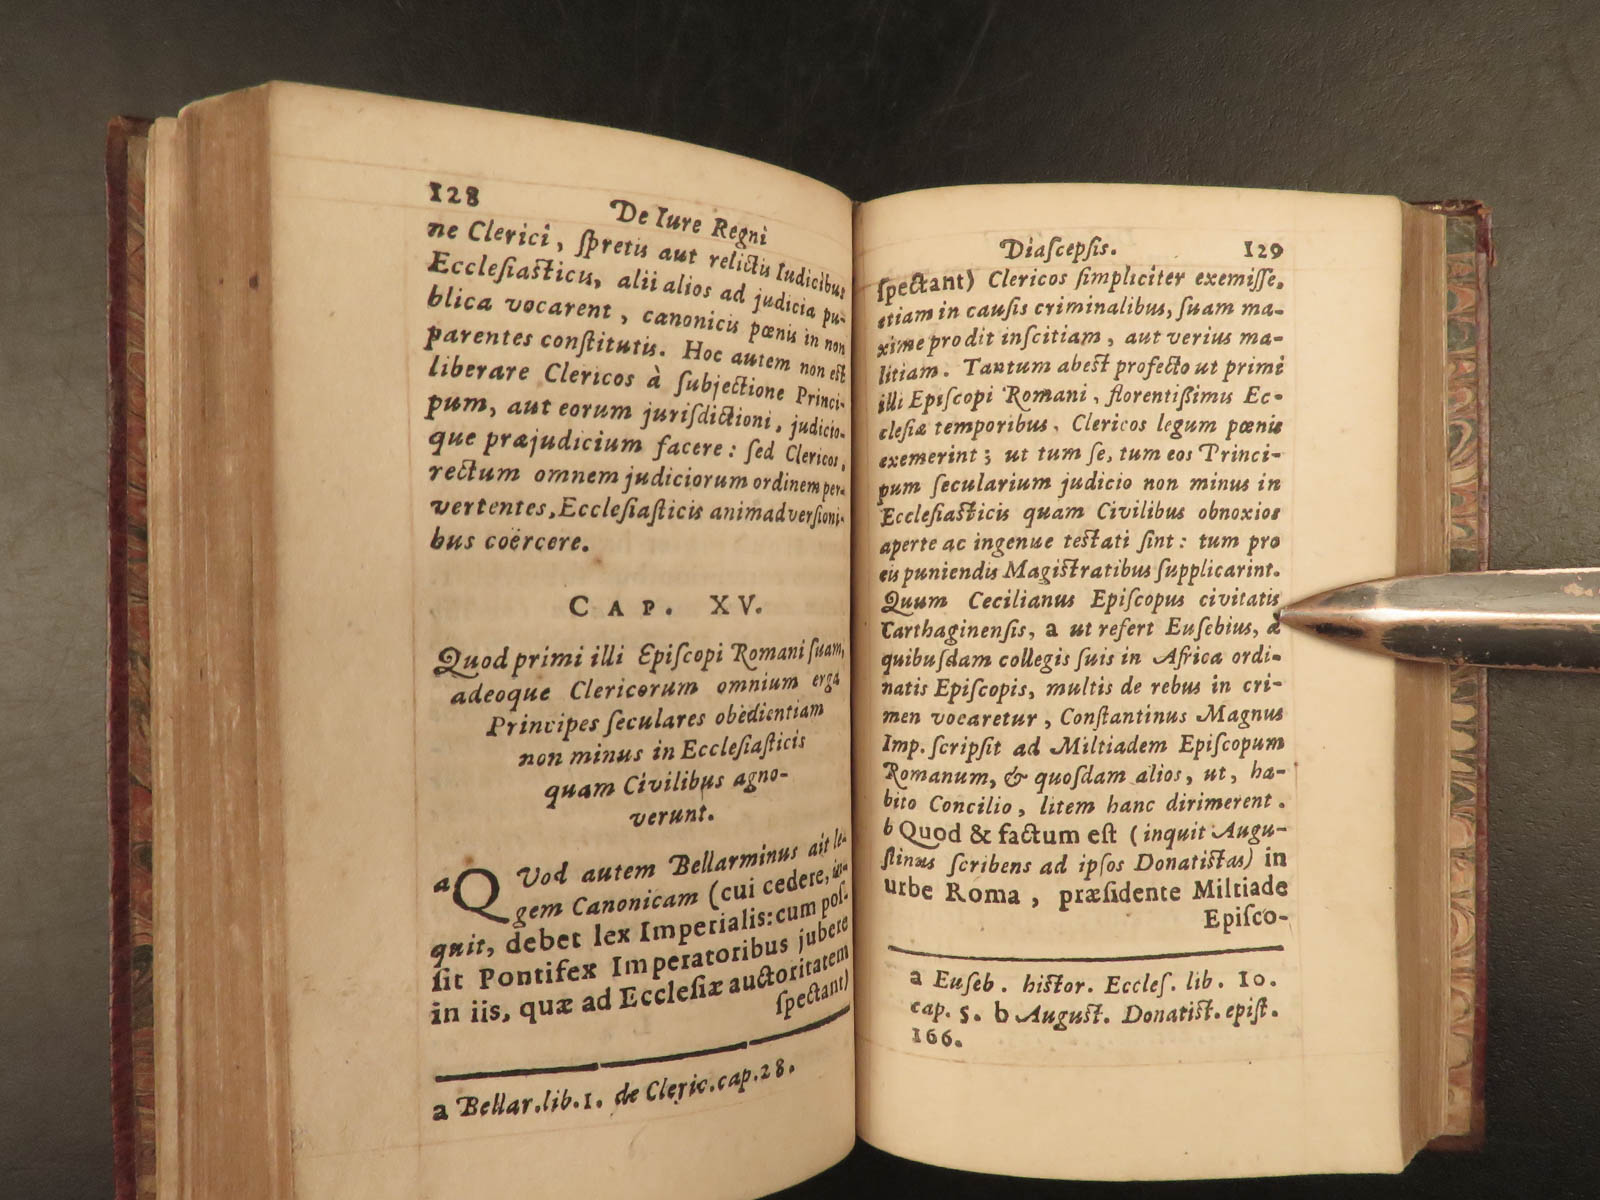 128
De Iure Regni
ne Clerici, ſpretis aut relictis Iudicibus
Eccleſiaſticis, alii alios ad judicia pu-
blica vocarent, canonicis pœnis in non
parentes conſtitutis. Hoc autem non eſt
liberare Clericos à ſubjectione Princi-
pum, aut eorum juriſdictioni, judicio-
que præjudicium facere: ſed Clericos,
rectum omnem judiciorum ordinem per-
vertentes, Eccleſiaſticis animadverſioni-
bus coërcere.
CAP. XV.
Quod primi illi Epiſcopi Romani ſuam,
adeoque Clericorum omnium erga
Principes ſeculares obedientiam
non minus in Eccleſiaſticis
quam Civilibus agno-
verunt.
a QVod autem Bellarminus ait le-
gem Canonicam (cui cedere, in-
quit, debet lex Imperialis: cum poſ-
ſit Pontifex Imperatoribus jubere
in iis, quæ ad Eccleſiæ auctoritatem
ſpectant)
a Bellar. lib. 1. de Cleric. cap. 28.
Diaſcepſis.
129
ſpectant) Clericos ſimpliciter exemiſſe,
etiam in cauſis criminalibus, ſuam ma-
xime prodit inſcitiam, aut verius ma-
litiam. Tantum abeſt profecto ut primi
illi Epiſcopi Romani, florentißimis Ec-
cleſiæ temporibus, Clericos legum pœnis
exemerint; ut tum ſe, tum eos Princi-
pum ſecularium judicio non minus in
Eccleſiaſticis quam Civilibus obnoxios
aperte ac ingenue teſtati ſint: tum pro
eis puniendis Magiſtratibus ſupplicarint.
Quum Cecilianus Epiſcopus civitatis
Carthaginenſis, a ut refert Euſebius, à
quibuſdam collegis ſuis in Africa ordi-
natis Epiſcopis, multis de rebus in cri-
men vocaretur, Conſtantinus Magnus
Imp. ſcripſit ad Miltiadem Epiſcopum
Romanum, & quoſdam alios, ut, ha-
bito Concilio, litem hanc dirimerent.
b Quod & factum eſt (inquit Augu-
ſtinus ſcribens ad ipſos Donatiſtas) in
urbe Roma, præſidente Miltiade
Epiſco-
a Euſeb. hiſtor. Eccleſ. lib. 10.
cap. 5. b Auguſt. Donatiſt. epiſt.
166.